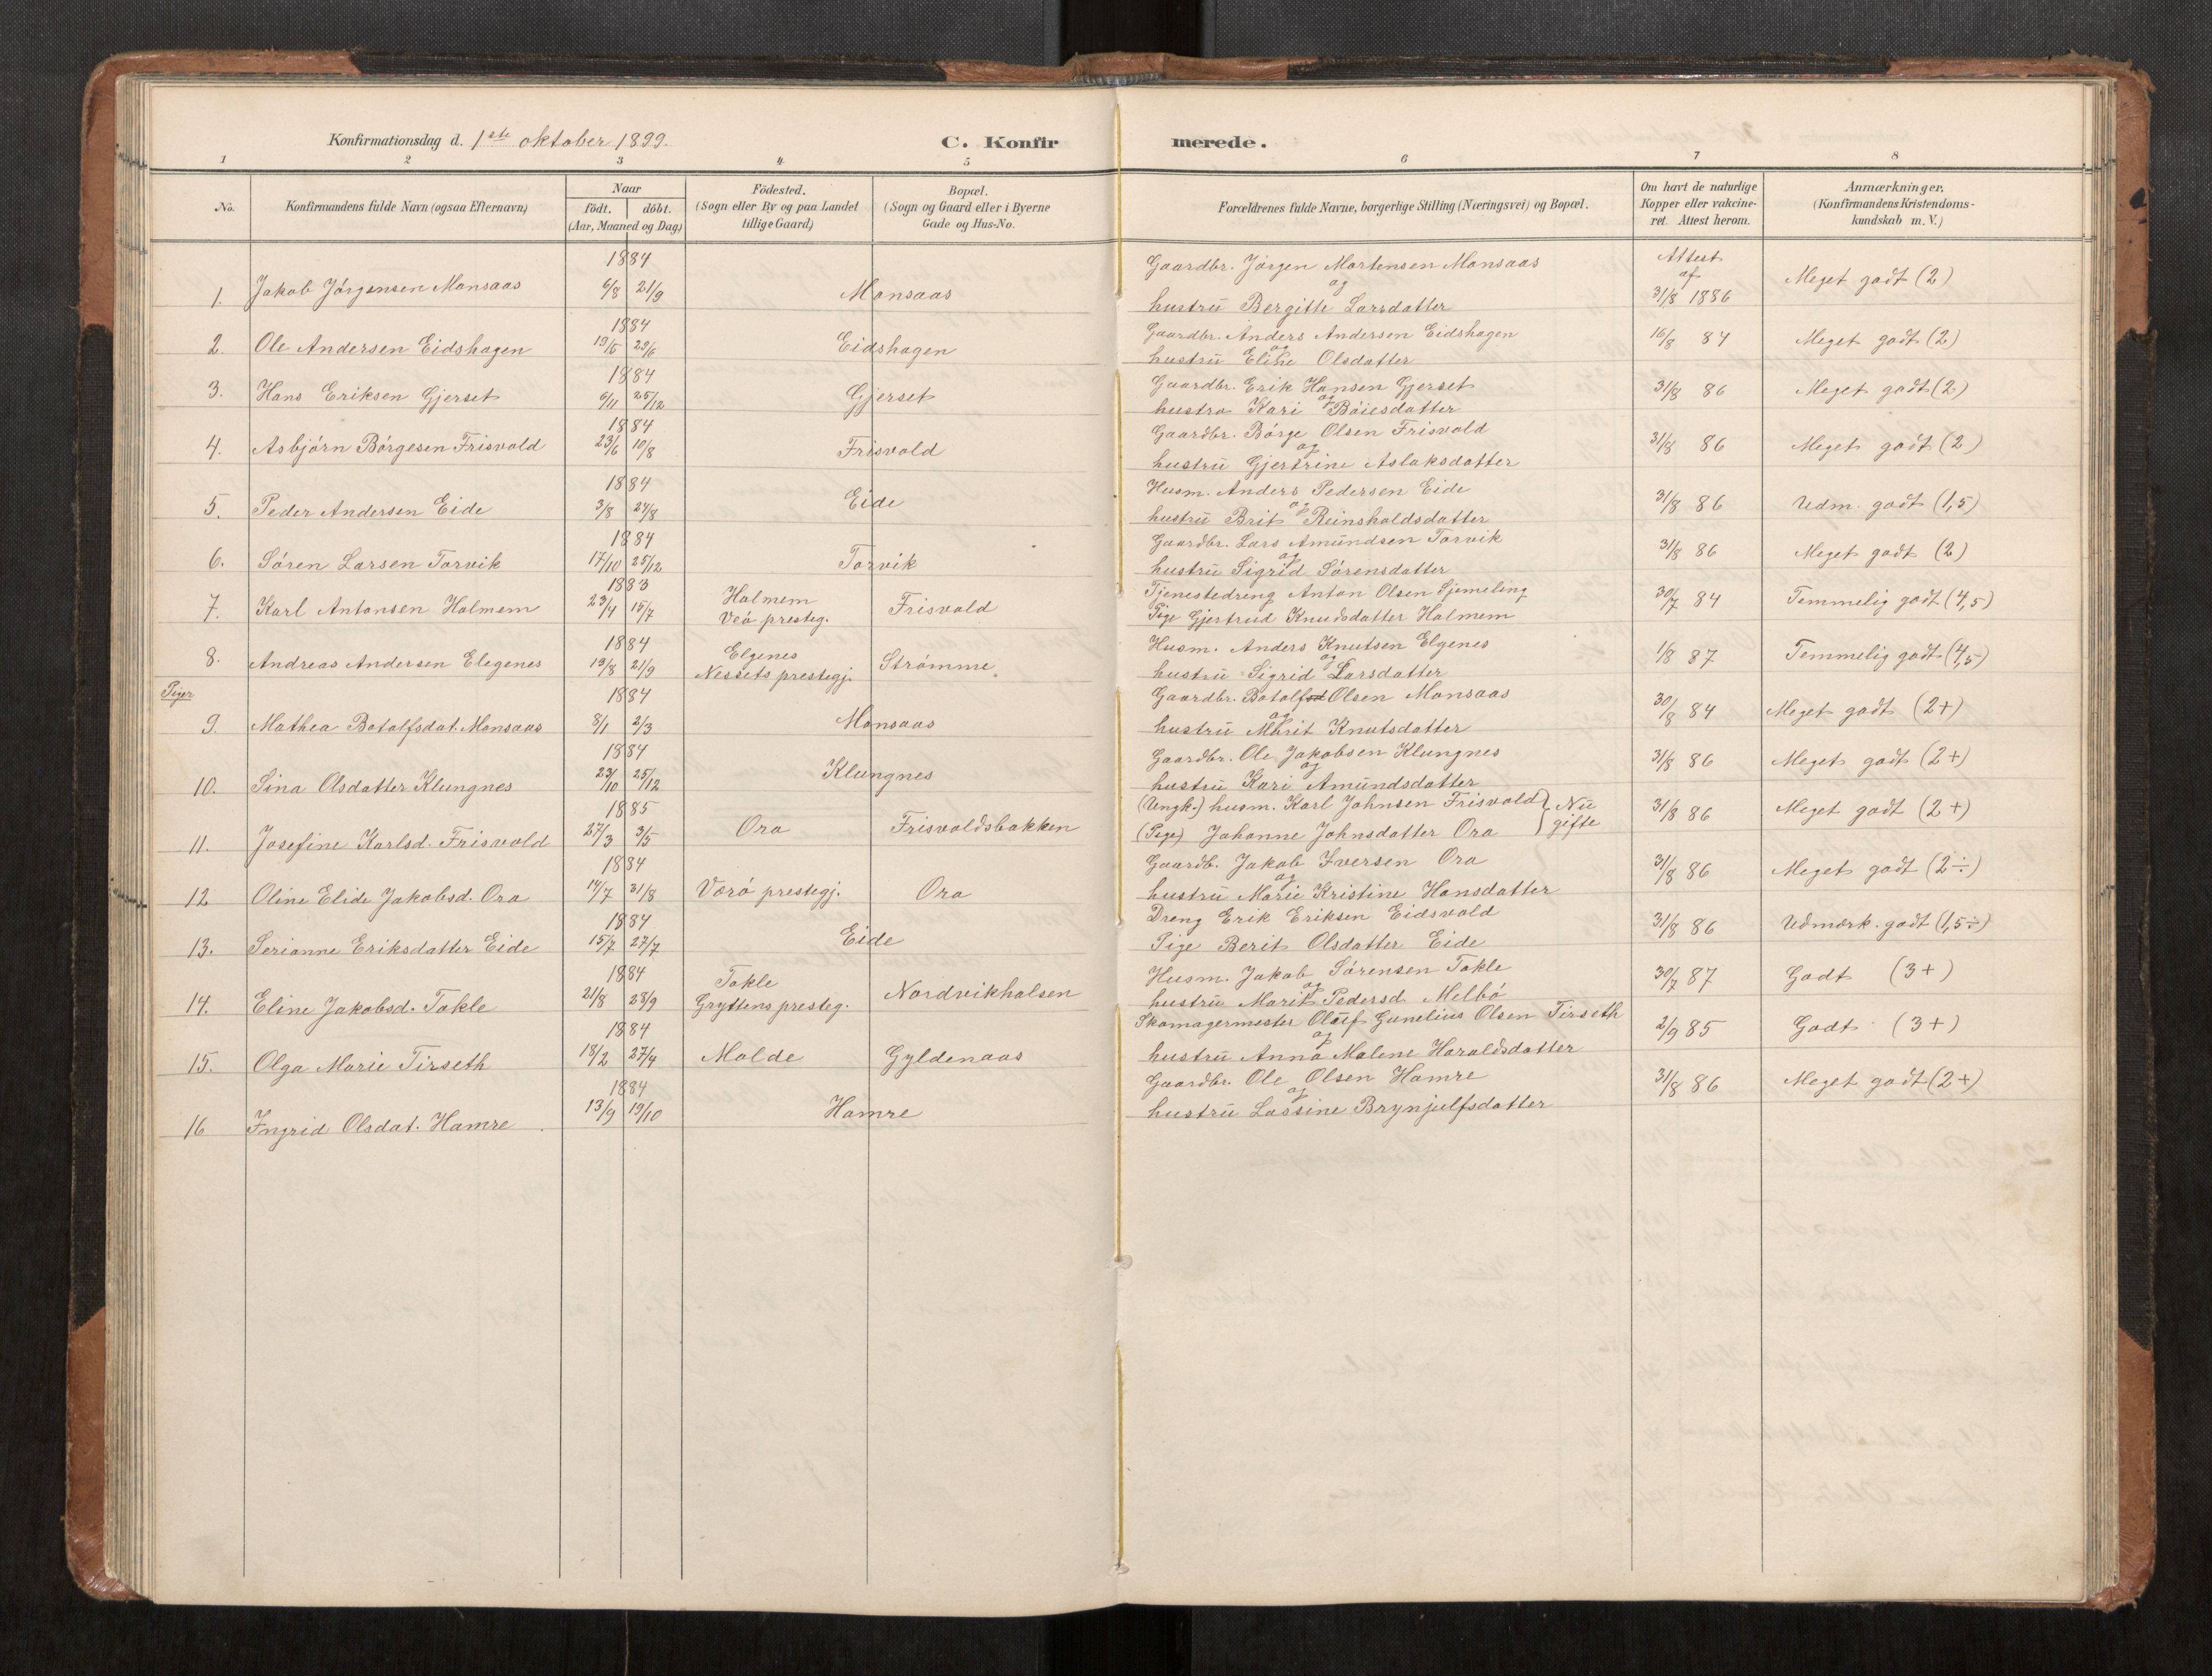 Konfirmationsdag d. 1ste oktober 1899.
C. Konfirmerede.
1 2 3 4 5 6 7 8
No.
Konfirmandens fulde Navn (ogsaa Efternavn)
Naar
födt. döbt.
(Aar, Maaned og Dag)
Födested.
(Sogn eller By og paa Landet
tillige Gaard)
Bopæl.
(Sogn og Gaard eller i Byerne
Gade og Hus-No.
Forældrenes fulde Navne, borgerlige Stilling (Næringsvei) og Bopæl.
Om havt de naturlige
Kopper eller vakcine-
ret. Attest herom.
Anmærkninger.
(Konfirmandens Kristendoms-
kundskab m. V.)
1884
1. Jakob Jörgensen Monsaas 6/8 21/9 Monsaas
Gaardbr. Jörgen Mortensen Monsaas
og
hustru Bergitte Larsdatter
Attest
af
31/8 1886
Meget godt (2)
1884
2. Ole Andersen Eidshagen 19/5 29/6 Eidshagen
Gaardbr. Anders Andersen Eidshagen
og
hustru Eline Olsdatter
16/8 84 Meget godt (2)
1884
3. Hans Eriksen Gjerset 6/11 25/12 Gjerset
Gaardbr. Erik Hansen Gjerset
og
hustro Kari Böiesdatter
31/8 86 Meget godt (2)
1884
4. Asbjörn Börgesen Frisvold 23/6 10/8 Frisvold
Gaardbr. Börge Olsen Frisvold
og
hustru Gjertrine Aslaksdatter
31/8 86 Meget godt (2)
1884
5. Peder Andersen Eide 3/8 24/8 Eide
Husm. Anders Pedersen Eide
og
hustru Brit Reinsholdsdatter
31/8 86 Udm. godt (1,5)
1884
6. Sören Larsen Torvik 17/10 25/12 Torvik
Gaardbr. Lars Amundsen Torvik
og
hustru Sigrid Sörensdatter
31/8 86 Meget godt (2)
1883
7. Karl Antonsen Holmem 23/4 15/7 Holmem
Veö presteg. Frisvold
Tjenestedreng Anton Olsen Sjemeling
Pige Gjertrud Knudsdatter Holmem
30/7 84 Temmelig godt (4,5)
1884
8. Andreas Andersen Elegenes 19/8 21/9 Elgenes
Nessets prestegj. Strömme
Husm. Anders Knutsen Elgenes
og
hustru Sigrid Larsdatter
1/8 87 Temmelig godt (4,5)
Piger
1884
9. Mathea Botolfsdat. Monsaas 8/1 2/3 Monsaas
Gaardbr. Botolf Olsen Monsaas
og
hustru Marit Knutsdatter
30/8 84 Meget godt (2+)
1884
10. Sina Olsdatter Klungnes 23/10 25/12 Klungnes
Gaardbr. Ole Jakobsen Klungnes
og
hustru Kari Amundsdatter
31/8 86 Meget godt (2+)
1885
11. Josefine Karlsd. Frisvold 27/3 3/5 Ora Frisvoldsbakken
(Ungk.) husm. Karl Johnsen Frisvold } Nu
(Pige) Johanne Johnsdatter Ora gifte
31/8 86 Meget godt (2+)
1884
12 Oline Elide Jakobsd. Ora 14/7 31/8 Værö prestegj. Ora
Gaardb. Jakob Iversen Ora
og
hustru Marie Kristine Hansdatter
31/8 86 Meget godt (2÷)
1884
13. Serianne Eriksdatter Eide 15/7 27/7 Eide
Dreng Erik Eriksen Eidsvold
Pige Berit Olsdatter Eide
31/8 86 Udmærk. godt (1,5÷)
1884
14. Eline Jakobsd. Tokle 21/8 28/9 Tokle
Gryttens presteg. Nordvikholsen
Husm. Jakob Sörensen Tokle
og
hustru Marit Pedersd. Melbö
30/7 87 Godt (3+)
1884
15. Olga Marie Tirseth 18/2 27/4 Molde Gyldenaas
Skomagermester Oluf Gunelius Olsen Tirseth
og
hustru Anna Malene Haraldsdatter
2/9 85 Godt (3+)
1884
16 Ingrid Olsdat. Hamre 13/9 19/10 Hamre
Gaardbr. Ole Olsen Hamre
og
hustru Lassine Brynjulfsdatter
31/8 86 Meget godt (2+)